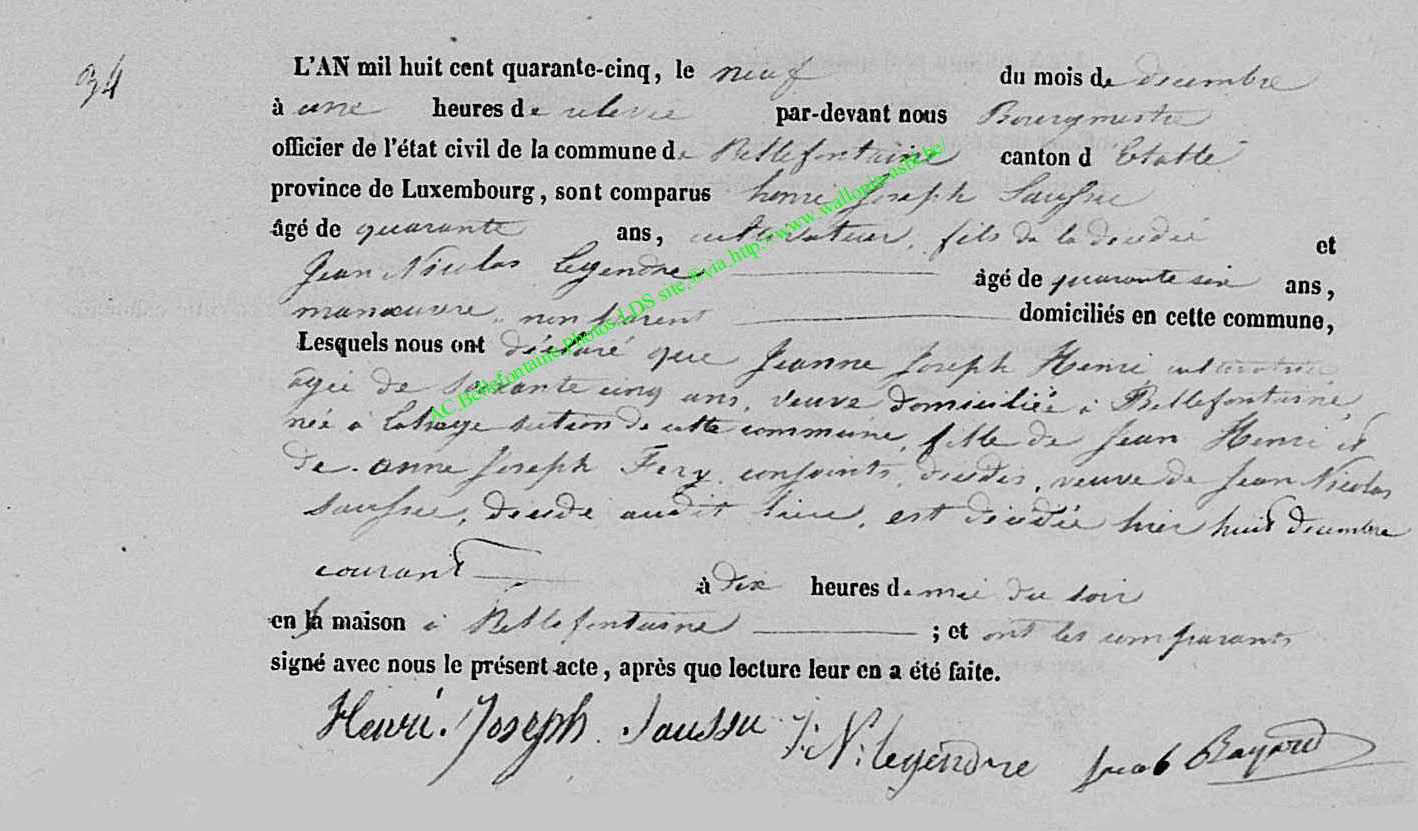 34
L'AN mil huit cent quarante-cinq, le neuf du mois de decembre
à une heures de relevée par-devant nous Bourgmestre
officier de l'état civil de la commune de Bellefontaine canton d Etalle
province de Luxembourg, sont comparus henri Joseph Saussu
âgé de quarante ans, cultivateur, fils de la décédée et
Jean Nicolas Legendre âgé de quarante six ans,
manœuvre, non parent domiciliés en cette commune,
Lesquels nous ont déclaré que Jeanne Joseph Henri cultivatrice
agée de soixante cinq ans, veuve domiciliée à Bellefontaine,
née à Lahage section de cette commune, fille de Jean Henri et
de anne Joseph Fery conjoints, décédés, veuve de Jean Nicolas
Saussu, décédé audit lieu, est décédée hier huit decembre
courant à dix heures du soir
en la maison à Bellefontaine ; et ont les comparants
signé avec nous le présent acte, après que lecture leur en a été faite.
Henri. Joseph. Saussu J: N: legendre Jacob Bayard
AC.Bellefontaine.Photos.LDS site © via http://www.wallonia-asbl.be/